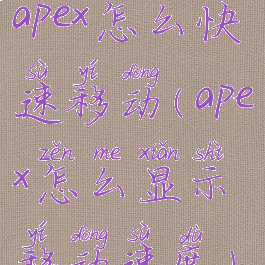 apex怎么快
sù yí dòng
速移动(ape
zěn me xiǎn shì
x怎么显示
yí dòng sù dù
移动速度)